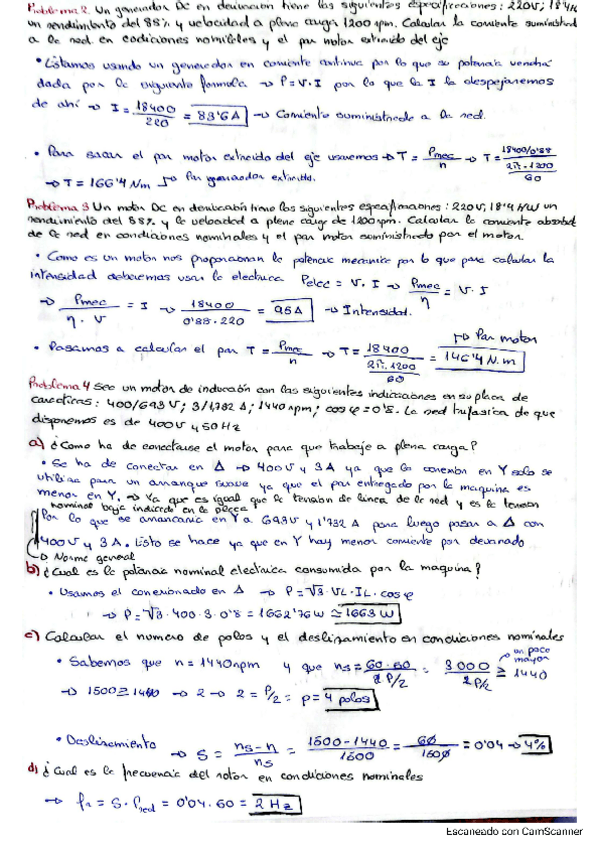 Problema 2. Un generador DC en derivación tiene las siguientes especificaciones: 220V; 18'4K
un rendimiento del 88% y velocidad a plena carga 1200 rpm. Calcular la corriente suministrad
a la red. en condiciones nominales y el par motor extraido del eje
• Listamos usando un generador en corriente continua por lo que su potencia vendrá
dada por la siguiente formula → P = V · I por lo que la I la despejaremos
de ahí → I = 18400/220 = 83'6 A → Corriente suministrada a la red.
• Para sacar el par motor extraido del eje usaremos → T = Pmec/n → T = (18400/0'88)/(2π·1200/60)
→ T = 166'4 Nm → Par generador extraido.
Problema 3 Un motor DC en derivación tiene las siguientes especificaciones: 220V, 18'4 KW un
rendimiento del 88% y la velocidad a plena carga de 1200 rpm. Calcular la corriente absorbid
de la red en condiciones nominales y el par motor suministrado por el motor.
• Como es un motor nos proporcionan la potencia mecanica por lo que para calcular la
intensidad deberemos usar la electrica Pelec = V · I → Pmec/η = V · I
→ Pmec/(η · V) = I → 18400/(0'88 · 220) = 95A → Intensidad.
• Pasamos a calcular el par T = Pmec/n → T = 18400/(2π·1200/60) = 146'4 N.m → Par motor
Problema 4 Sea un motor de inducción con las siguientes indicaciones en su placa de
caracteristicas: 400/693 V; 3/1,732 A; 1440 rpm; cos φ = 0'8. La red trifasica de que
disponemos es de 400 V y 50 Hz
a) ¿Como ha de conectarse el motor para que trabaje a plena carga?
• Se ha de conectar en Δ → 400V y 3A ya que la conexión en Y solo se
utiliza para un arranque suave ya que el par entregado por la maquina es
menor en Y. → Ya que es igual que la tension de linea de la red y es la tension
nominal baja indicada en la placa
Por lo que se arrancaria en Y a 693V y 1'732 A para luego pasar a Δ con
400V y 3A. Esto se hace ya que en Y hay menor corriente por devanado
→ Norma general
b) ¿Cual es la potencia nominal electrica consumida por la maquina?
• Usamos el conexionado en Δ → P = √3 · VL · IL · cos φ
→ P = √3 · 400 · 3 · 0'8 = 1662'76 W ≅ 1663 W
c) Calcular el numero de polos y el deslizamiento en condiciones nominales
• Sabemos que n = 1440 rpm y que ns = 60 · 50/(2P/2) = 3000/(2P/2) ≥ 1440 → un poco mayor
→ 1500 ≥ 1440 → 2 → 2 = P/2 = p = 4 polos
• Deslizamiento → S = (ns - n)/ns = (1500 - 1440)/1500 = 60/1500 = 0'04 → 4%
d) ¿Cual es la frecuencia del rotor en condiciones nominales
→ fr = S · fred = 0'04 · 60 = 2 Hz
Escaneado con CamScanner